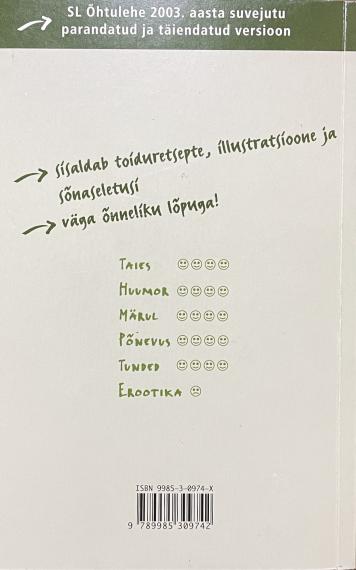 SL Õhtulehe 2003. aasta suvejutu
parandatud ja täiendatud versioon
sisaldab toiduretsepte, illustratsioone ja
sõnaseletusi
väga õnneliku lõpuga!
TAIES
HUUMOR
MÄRUL
PÕNEVUS
TUNDED
EROOTIKA
ISBN 9985-3-0974-X
9 789985 309742